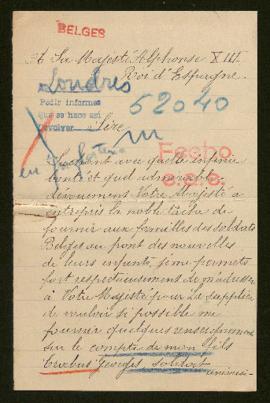 BELGES
A Sa Majesté Alphonse XIII.
Roi d'Espagne.
Londres
Pedir informes
que se hace así
devolver
52040
Sire
Fecho
Sachant avec quelle infinie
bonté et quel admirable
dévouement Votre Majesté a
entrepris la noble tâche de
fournir aux familles des soldats
Belges au front des nouvelles
de leurs enfants, je me permets
fort respectueusement de m'adresser
à Votre Majesté pour La supplier
de vouloir si possible me
fournir quelques renseignements
sur le compte de mon fils
Georges soldat